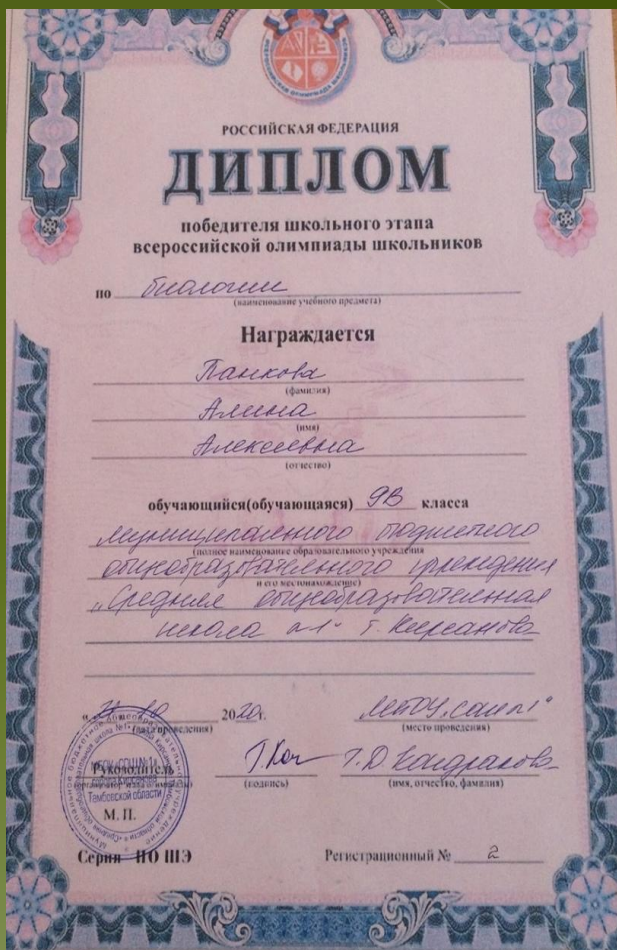 РОССИЙСКАЯ ФЕДЕРАЦИЯ
ДИПЛОМ
победителя школьного этапа
всероссийской олимпиады школьников
по биологии
(наименование учебного предмета)
Награждается
Панкова
(фамилия)
Алина
(имя)
Алексеевна
(отчество)
обучающийся(обучающаяся) 9В класса
муниципального бюджетного
(полное наименование образовательного учреждения
общеобразовательного учреждения
и его местонахождение)
"Средняя общеобразовательная
школа №1" г. Кирсанова
10 2020г. МБОУ "СОШ №1"
(дата проведения) (место проведения)
Руководитель Т.Д. Кондракова
(подпись) (имя, отчество, фамилия)
Тамбовской области
М.П.
Серия ПО ШЭ Регистрационный № 2